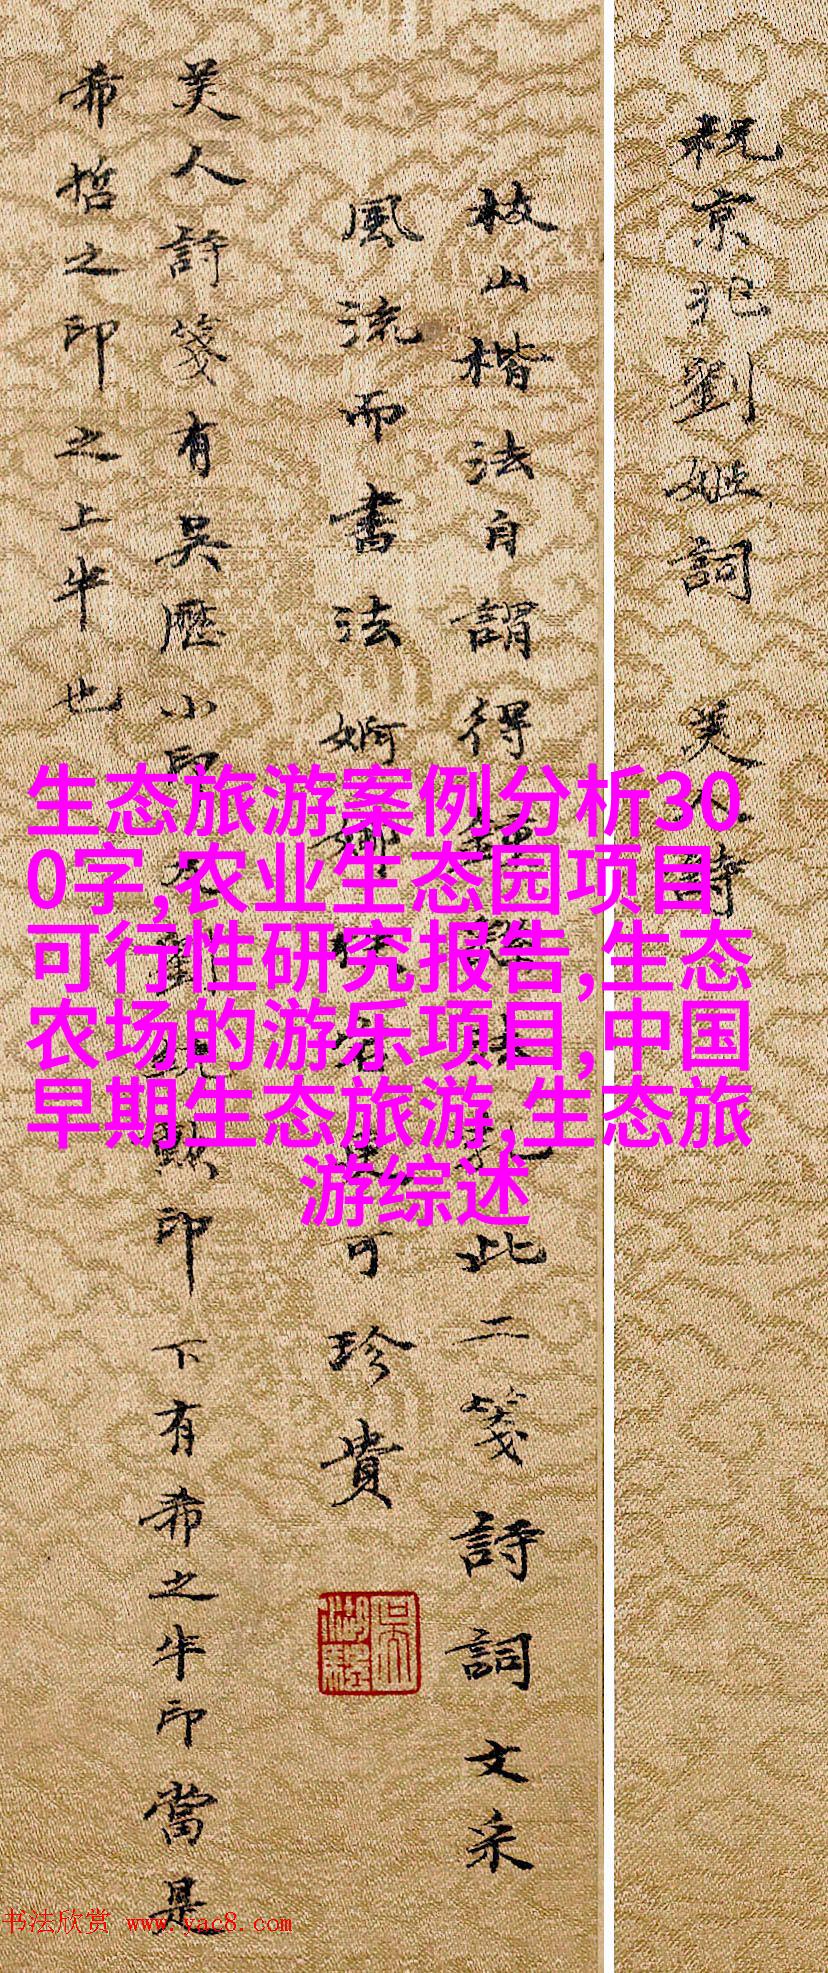 祝京兆劉姬詞 美人詩
枝山楷法自謂得鍾
此二箋詩詞文采
風流而書法婀娜
可珍貴
美人詩箋有吳歷小印
照印下有希之半印當是
希哲之印之上半也
生态旅游案例分析30
0字,农业生态园项目
可行性研究报告,生态
农场的游乐项目,中国
早期生态旅游,生态旅
游综述
书法欣赏 www.yac8.com